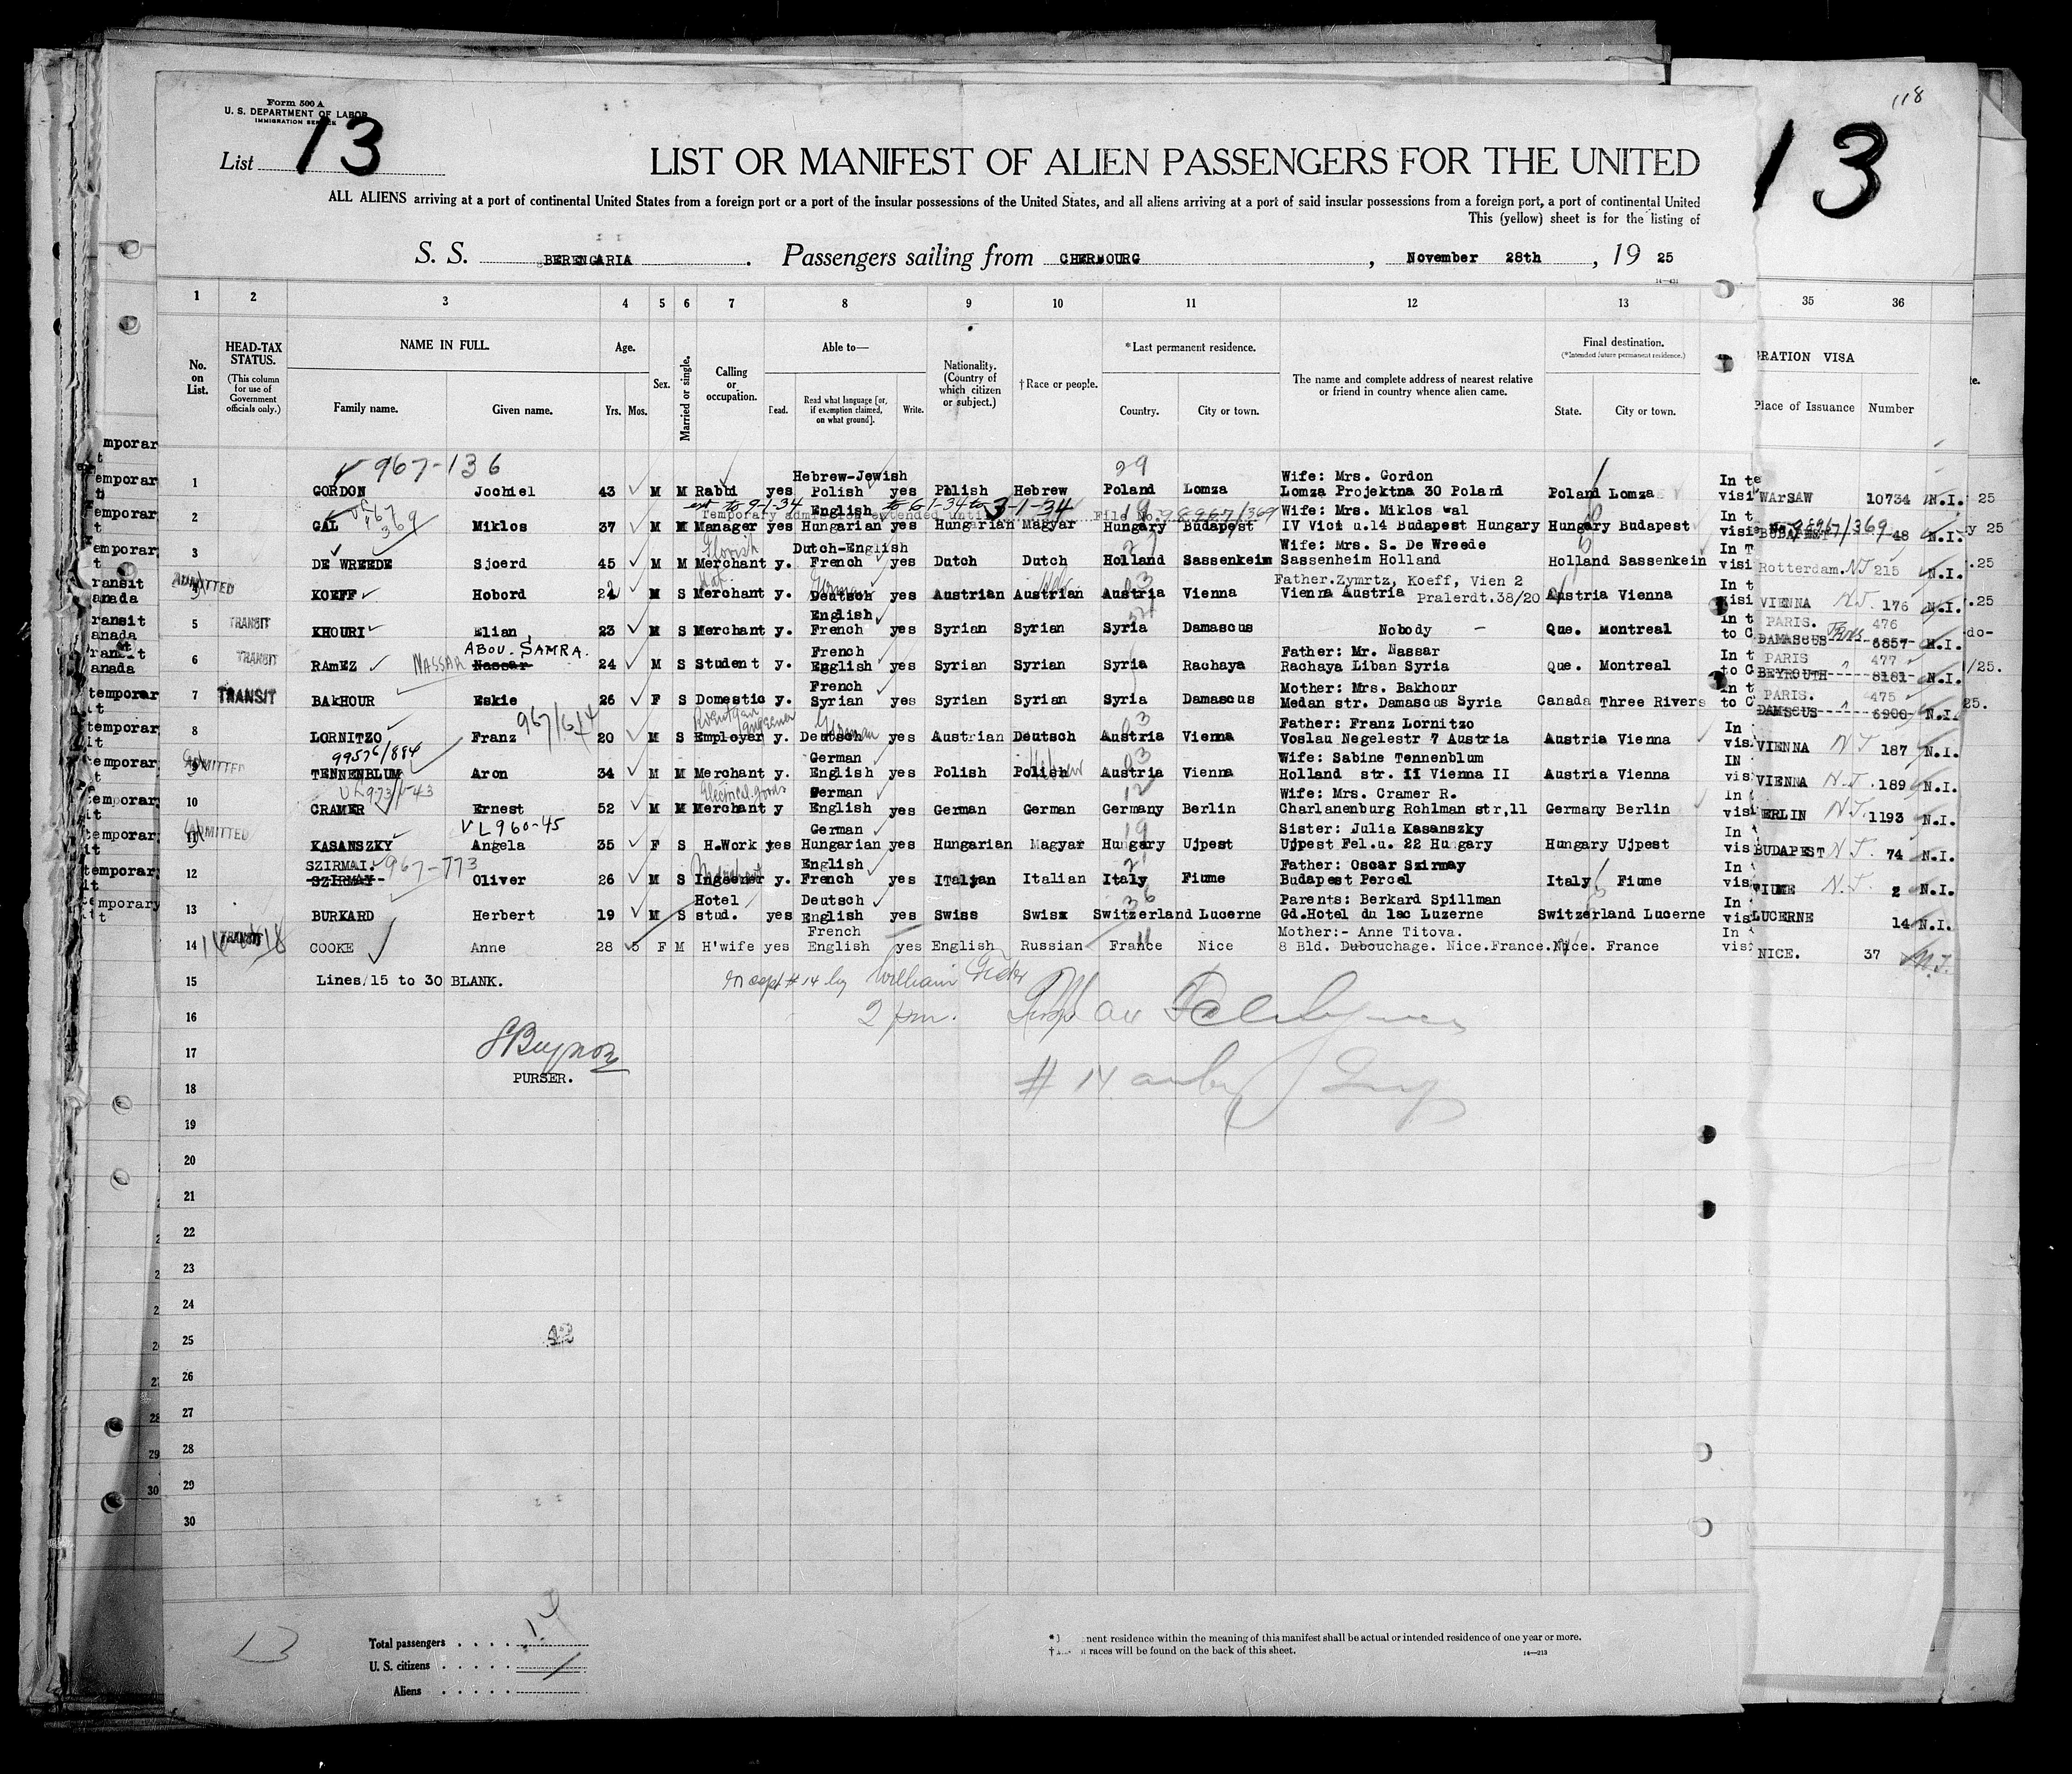 118
Form 500 A
U. S. DEPARTMENT OF LABOR
IMMIGRATION SERVICE
List 13
13
LIST OR MANIFEST OF ALIEN PASSENGERS FOR THE UNITED
ALL ALIENS arriving at a port of continental United States from a foreign port or a port of the insular possessions of the United States, and all aliens arriving at a port of said insular possessions from a foreign port, a port of continental United
This (yellow) sheet is for the listing of
S. S. BERENGARIA. Passengers sailing from CHERBOURG, November 28th, 19 25
14—431
1 2 3 4 5 6 7 8 9 10 11 12 13 35 36
No. on List. HEAD-TAX STATUS. (This column for use of Government officials only.) NAME IN FULL. Family name. Given name. Age. Yrs. Mos. Sex. Married or single. Calling or occupation. Able to— Read. Read what language [or, if exemption claimed, on what ground]. Write. Nationality. (Country of which citizen or subject.) †Race or people. *Last permanent residence. Country. City or town. The name and complete address of nearest relative or friend in country whence alien came. Final destination. (*Intended future permanent residence.) State. City or town. GRATION VISA Place of Issuance Number
967-136 29
Hebrew-Jewish Wife: Mrs. Gordon In te
1 GORDON Jochiel 43 M M Rabbi yes Polish yes Polish Hebrew Poland Lomza Lomza Projektna 30 Poland Poland Lomza visi WARSAW 10734 N.I. 25
ext to 9-1-34 to 6-1-34 to 3-1-34
Temporary admission extended until File No. 98967/369
English Wife: Mrs. Miklos Wal In t
2 GAL Miklos 37 M M Manager yes Hungarian yes Hungarian Magyar Hungary Budapest IV Vici u.14 Budapest Hungary Hungary Budapest visi BUDAPEST 48 N.I. y 25
Dutch-English Wife: Mrs. S. De Wreede In T
3 DE WREEDE Sjoerd 45 M M Merchant y. French yes Dutch Dutch Holland Sassenheim Sassenheim Holland Holland Sassenkein visi Rotterdam. 215 N.I. .25
ADMITTED Father.Zymrtz, Koeff, Vien 2 In t
4 KOEFF Hobord 24 M S Merchant y. Deutsch yes Austrian Austrian Austria Vienna Vienna Austria Pralerdt.38/20 Austria Vienna visi VIENNA 176 N.I. .25
English In t PARIS. 476
5 TRANSIT KHOURI Elian 23 M S Merchant y. French yes Syrian Syrian Syria Damascus Nobody - Que. Montreal to C DAMASCUS 6857 N.I. do-
ABOU. SAMRA. French Father: Mr. Nassar In t PARIS 477
6 TRANSIT RAMEZ NASSAR Nassar 24 M S Student y. English yes Syrian Syrian Syria Rachaya Rachaya Liban Syria Que. Montreal to C BEYROUTH 8181 N.I. 1/25.
French Mother: Mrs. Bakhour In t PARIS. 475
7 TRANSIT BAKHOUR Eskie 26 F S Domestic y. Syrian yes Syrian Syrian Syria Damascus Medan str. Damascus Syria Canada Three Rivers to C DAMSCUS 6900 N.I. 25.
967/614 German Father: Franz Lornitzo In
8 LORNITZO Franz 20 M S Employer y. Deutsch yes Austrian Deutsch Austria Vienna Voslau Negelestr 7 Austria Austria Vienna vis VIENNA 187 N.I.
ADMITTED 99576/884 German Hebrew Wife: Sabine Tennenblum IN
9 TENNENBLUM Aron 34 M M Merchant y. English yes Polish Polish Austria Vienna Holland str. II Vienna II Austria Vienna vis VIENNA 189 N.I.
Electrical goods German Wife: Mrs. Cramer R. In
10 CRAMER Ernest 52 M M Merchant y English yes German German Germany Berlin Charlanenburg Rohlman str,11 Germany Berlin visi BERLIN 1193 N.I.
ADMITTED L960-45 German 19 Sister: Julia Kasanszky In
11 KASANSZKY Angela 35 F S H.Work yes Hungarian yes Hungarian Magyar Hungary Ujpest Ujpest Fel.u. 22 Hungary Hungary Ujpest vis BUDAPEST 74 N.I.
SZIRMAI. 967-773 English Father: Oscar Szirmay In
12 SZIRMAY Oliver 26 M S Ingeener y. French yes Italian Italian Italy Fiume Budapest Percel Italy Fiume vis FIUME 2 N.I.
Hotel Deutsch 36 Parents: Berkard Spillman In
13 BURKARD Herbert 19 M S stud. yes English yes Swiss Swiss Switzerland Lucerne Gd.Hotel du lac Luzerne Switzerland Lucerne vis LUCERNE 14 N.I.
TRANSIT French Mother:- Anne Titova. In
14 COOKE Anne 28 5 F M H'wife yes English yes English Russian France Nice 8 Bld. Dubouchage. Nice.France. Nice. France vis NICE. 37 N.I.
15 Lines 15 to 30 BLANK.
16 2 pm.
17
PURSER.
18
19
20
21
22
23
24
42
25
26
27
28
29
30
13
Total passengers . . . .
U. S. citizens . . . . .
Aliens . . . . .
nent residence within the meaning of this manifest shall be actual or intended residence of one year or more.
races will be found on the back of this sheet.
14—213